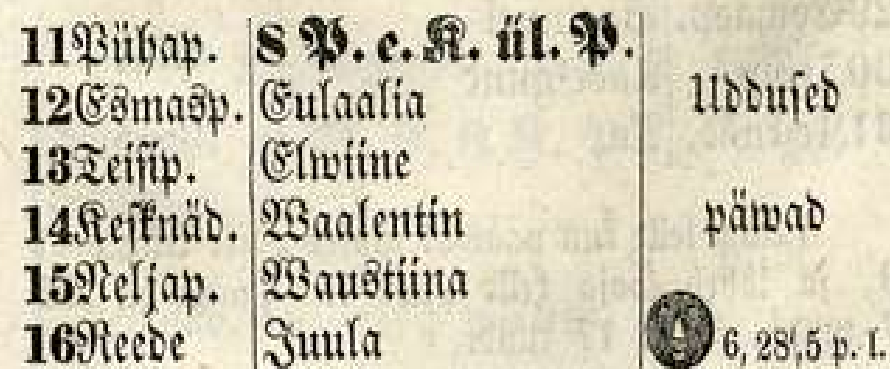 11 Pühap. 8 P. e. K. ül. P.
12 Esmasp. Eulaalia Uddused
13 Teisip. Elwiine
14 Kesknäd. Waalentin päwad
15 Neljap. Waustiina
16 Reede Juula 6, 28',5 p. l.